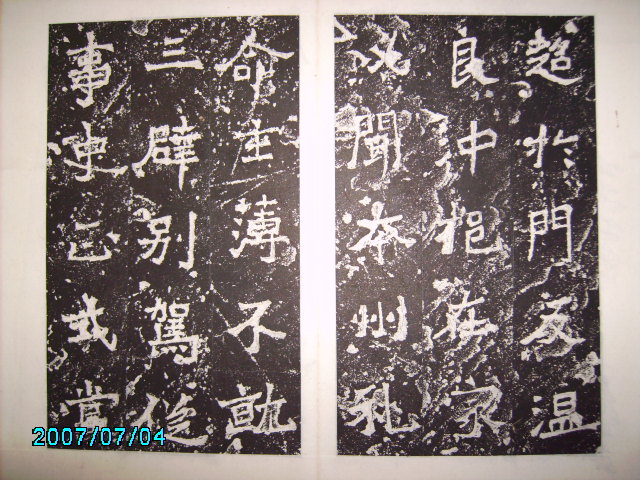 超於門友温
良冲挹在家
必聞本州礼
命主薄不就
三辟别駕從
事史正式當
2007/07/04